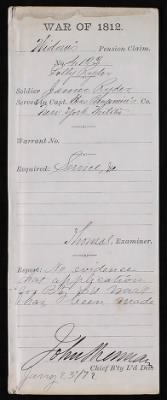 WAR OF 1812.
Widow's Pension Claim.
No.
Polly Ryder
Soldier James Ryder
Served in Capt. Co.
New York Militia
Warrant No.
Required: Service, &c
Thomas, Examiner.
Report: No evidence
that application
for B. L. has
been made
Chief B'ty L'd Div.